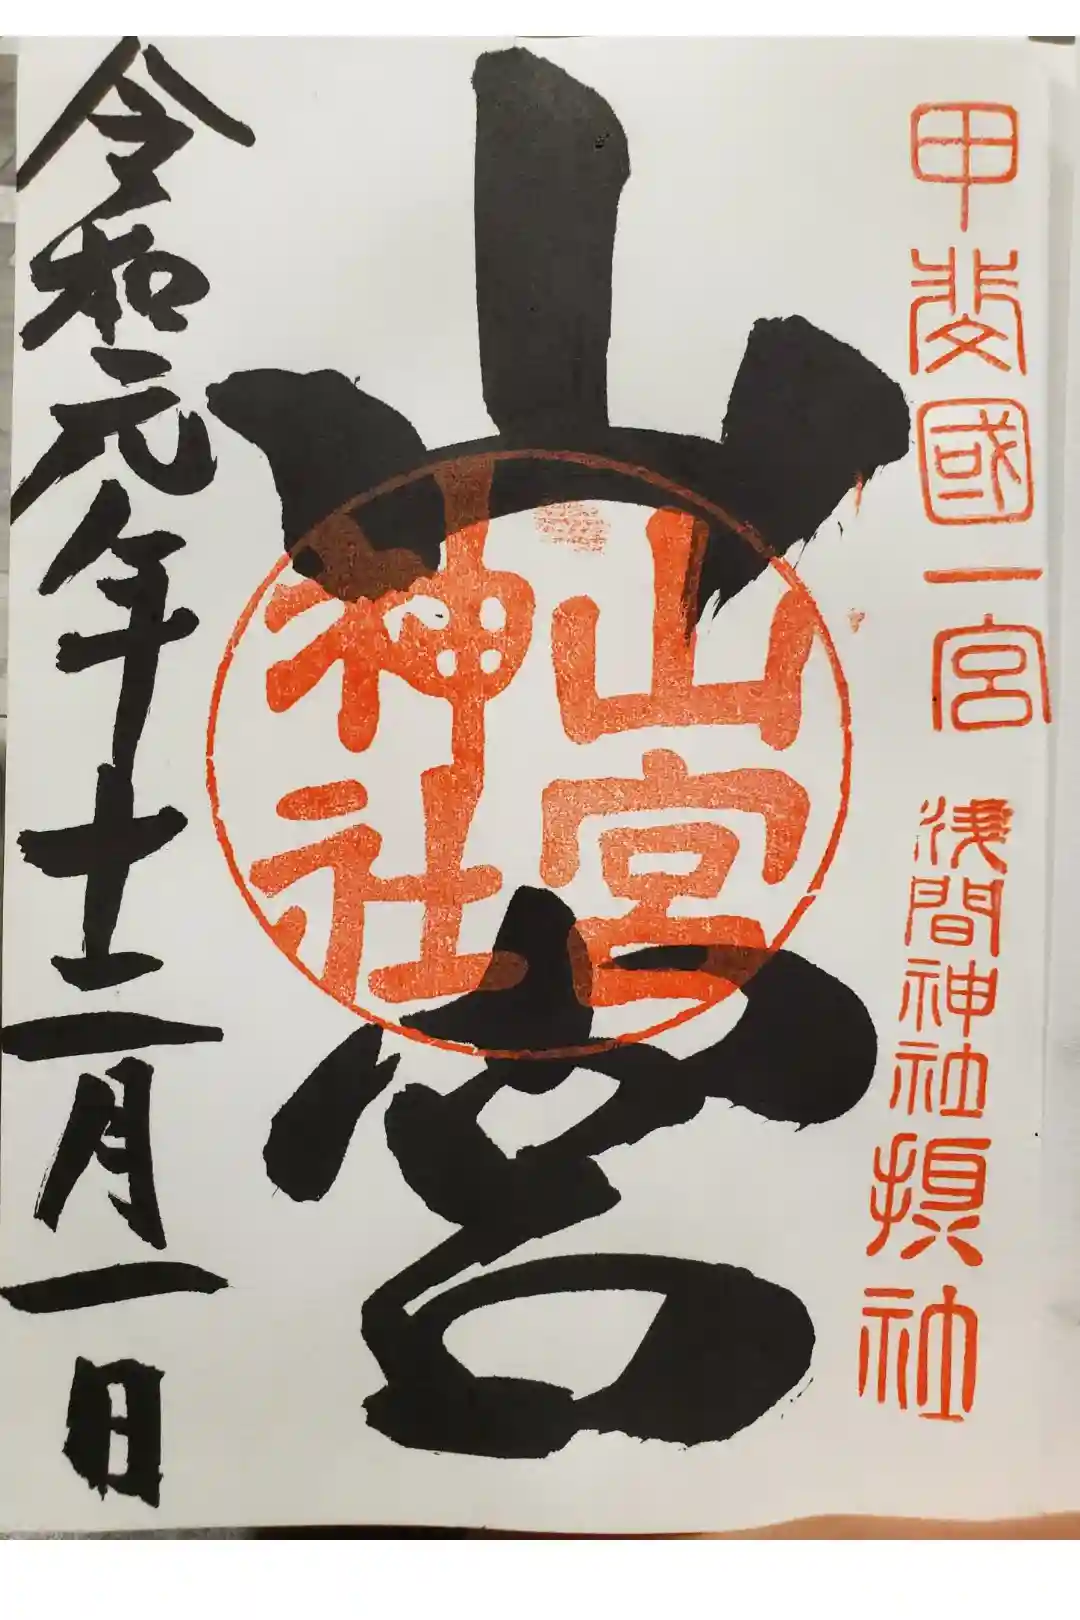 甲斐國一宮
浅間神社摂社
山宮
山宮
神社
令和元年十二月一日